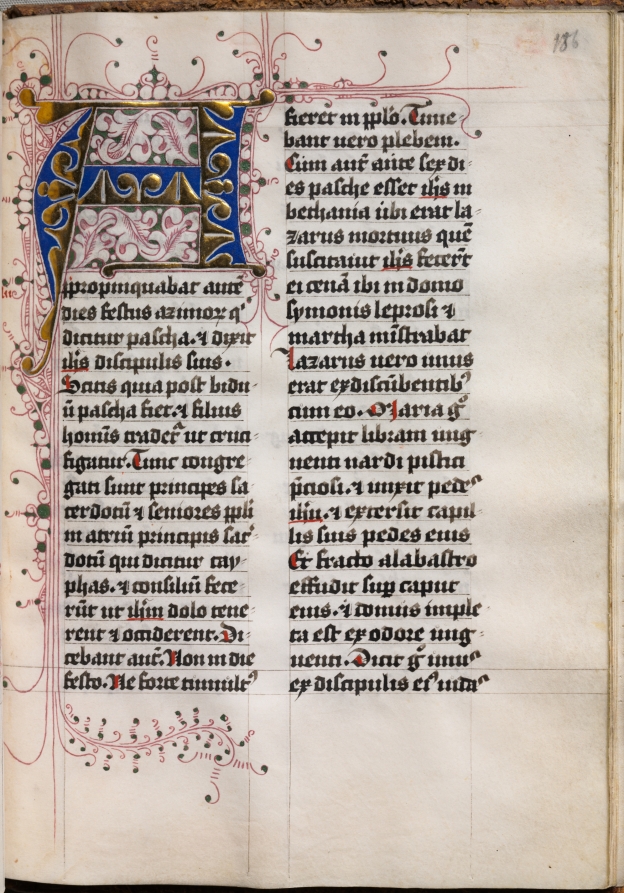 186
A
ppropinquabat autē
dies festus azimorꝝ qͥ
dicitur pascha. ⁊ dixit
ih̄s discipulis suis.
Scitis quia post bidu⸗
ū pascha fiet. ⁊ filius
hominis tradet᷑ ut cruci⸗
figatur. Tunc congre⸗
gati sunt principes sa⸗
cerdotū ⁊ seniores pp̄li
in atriū principis sac̓⸗
dotū qui dicitur cay⸗
phas. ⁊ consiliū fece⸗
rūt ut ih̄m dolo tene⸗
rent ⁊ occiderent. Di⸗
cebant aut̄. Non in die
festo. Ne forte tumultꝰ
fieret in pp̄lo. Time⸗
bant uero plebem.
Cum aut̄ ante sex di⸗
es pasche esset ih̄s in
bethania ubi erat la⸗
zarus mortuus quē
suscitauit ih̄s fecer̄t
ei cenā ibi in domo
symonis leprosi ⁊
martha mīstrabat
Lazarus uero unus
erat ex discūbentibꝰ
cum eo. Maria gͦ
accepit libram ung⸗
uenti nardi pistici
p̄ciosi. ⁊ unxit pedes
ih̄u. ⁊ extersit capil⸗
lis suis pedes eius
Et fracto alabastro
effudit suꝑ caput
eius. ⁊ domus imple⸗
ta est ex odore ung⸗
uenti. Dicit gͦ unus
ex discipulis eiꝰ iudas